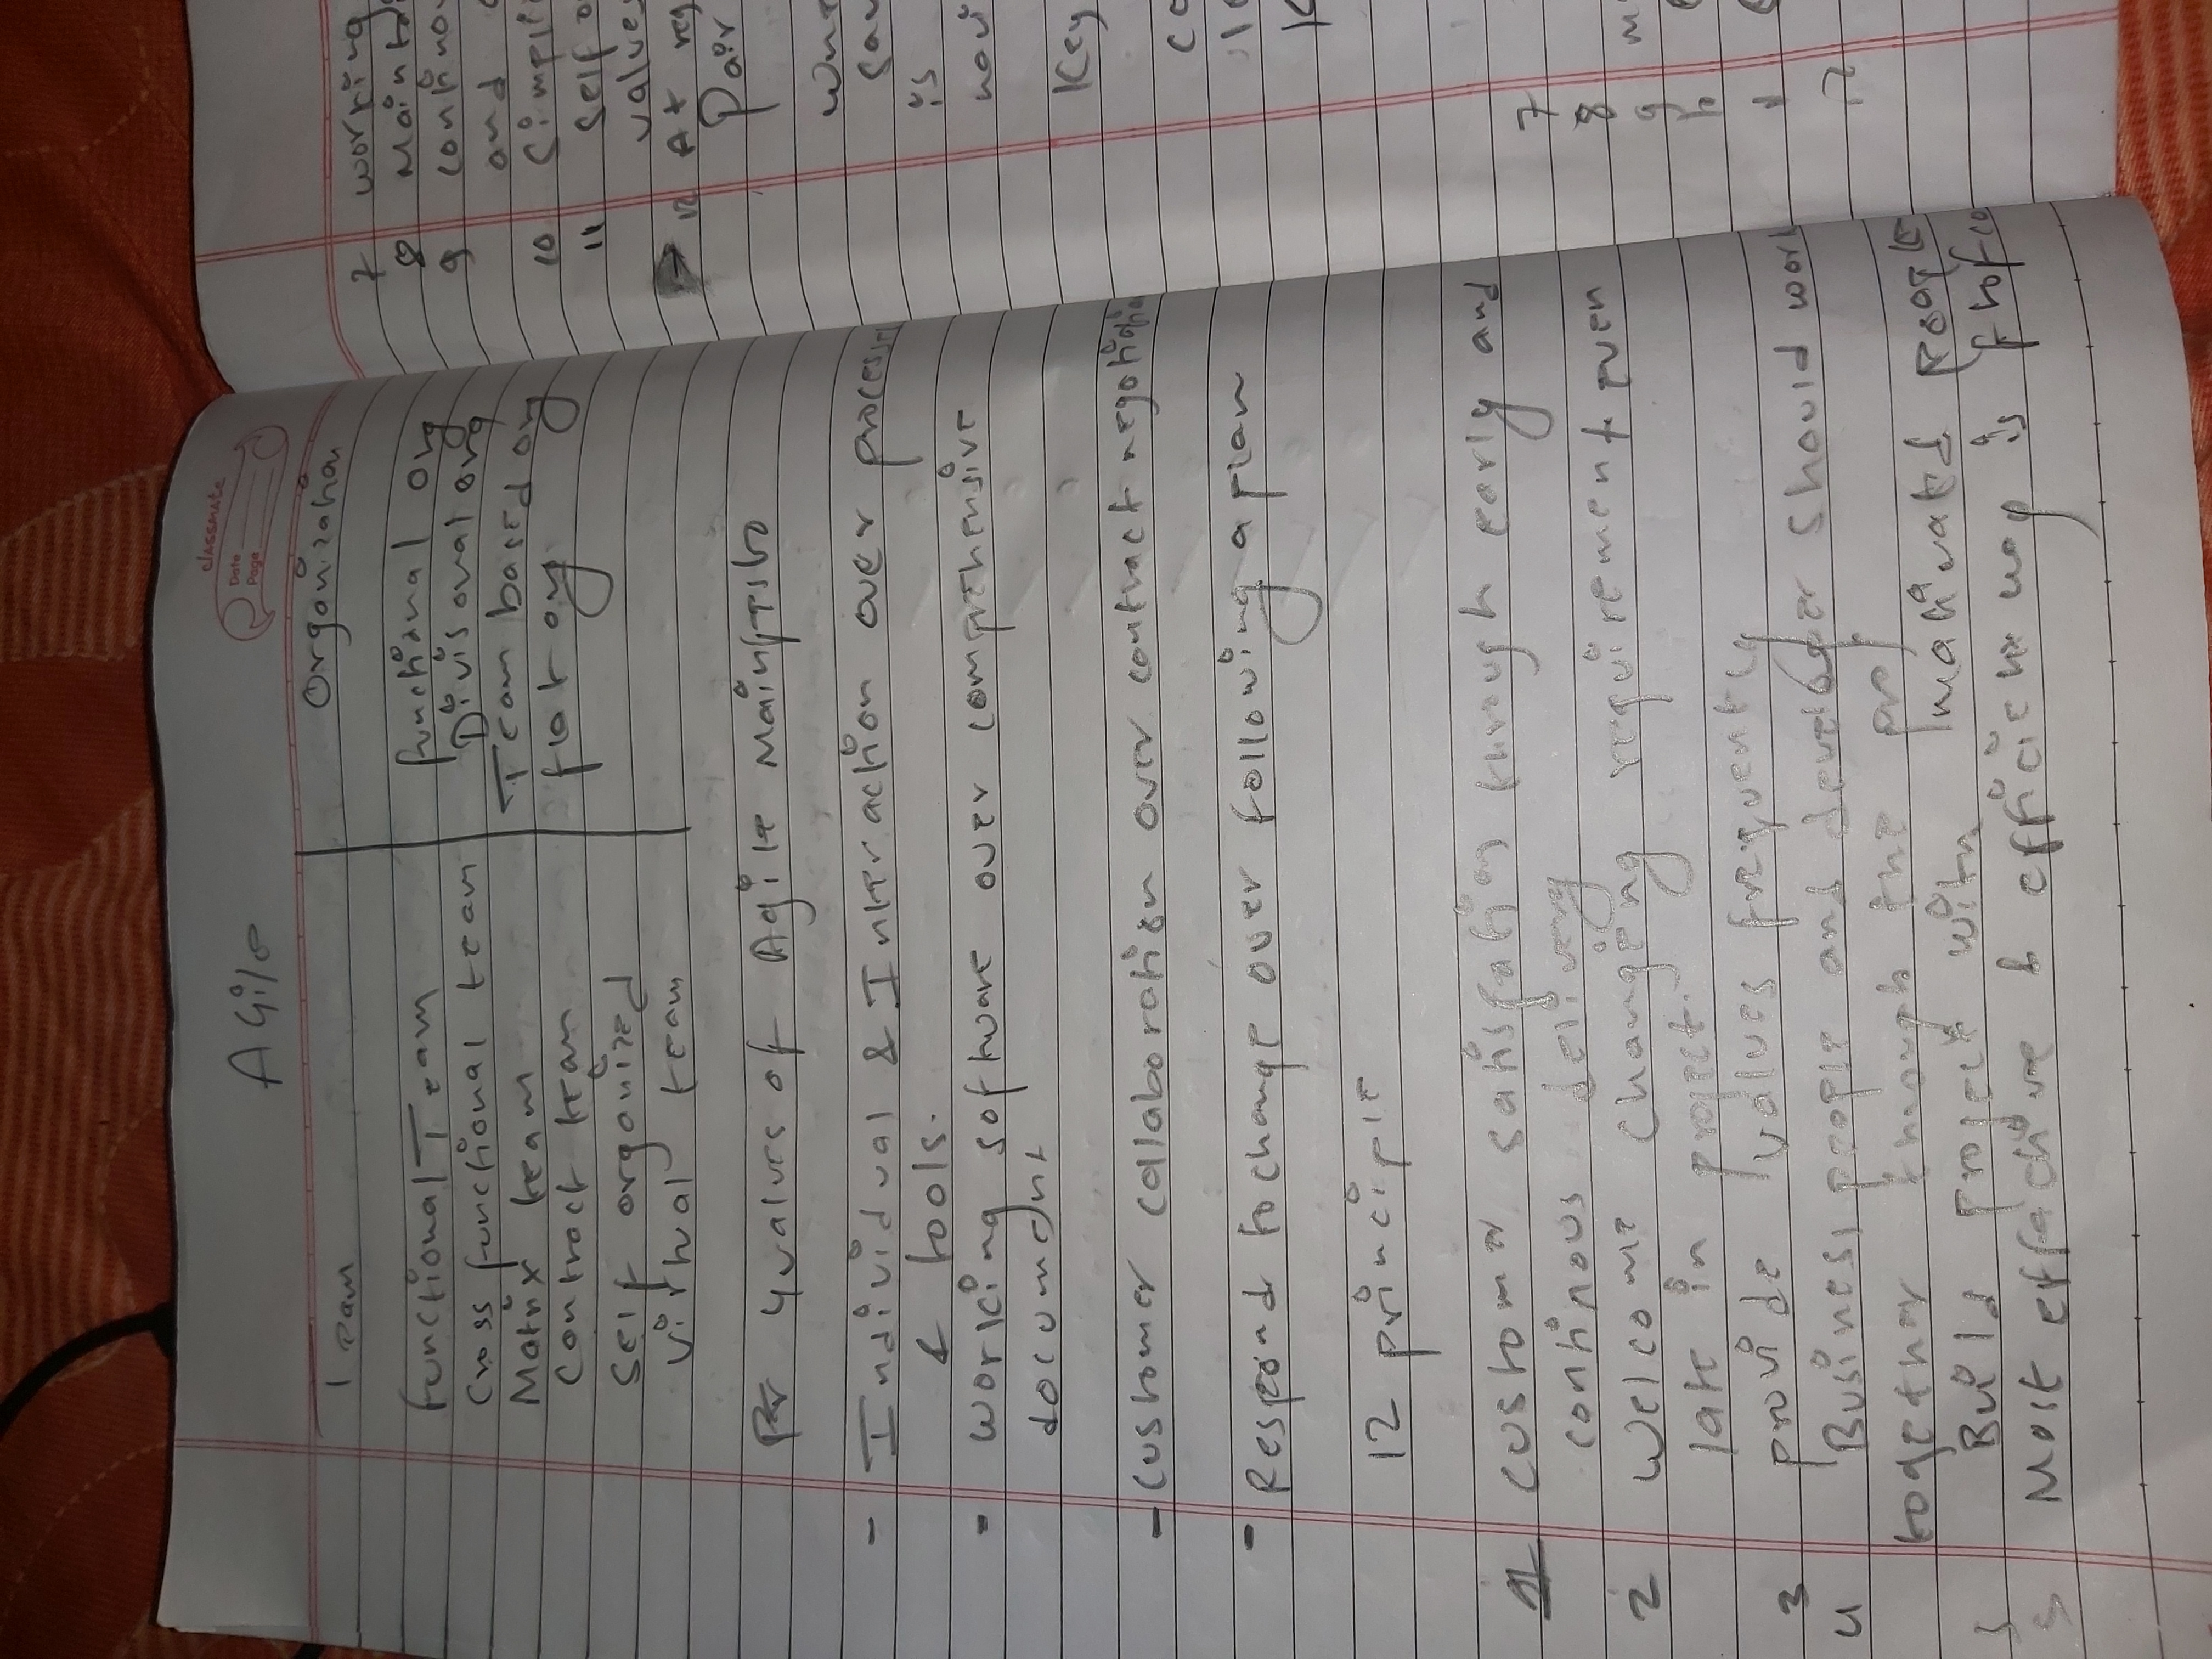 Agile
classmate
Date
Page
Team
Organization
functional Team
functional org
Cross functional team
Divisonal org
Matrix team
Team based org
Contract team
flat org
Self organized
Virtual team
4 values of Agile Mainfesto
- Individual & Interaction over processes
& tools.
- working software over comprehensive
document
- customer collaboration over contract negotiation
- Respond to change over following a plan
12 principle
1 customer satisfation through early and
continous delivery
2 Welcome changeing requirement even
late in project.
3 provide values frequently
4 Business people and developer should work
together through the proj
5 Build project with motivated people
5 Most effective & efficient way is
7 working
8 Maint
9 contino
and
10 Simpli
11 Self o
values
12 At reg
Pair
is
Key
co
7
8
9
12